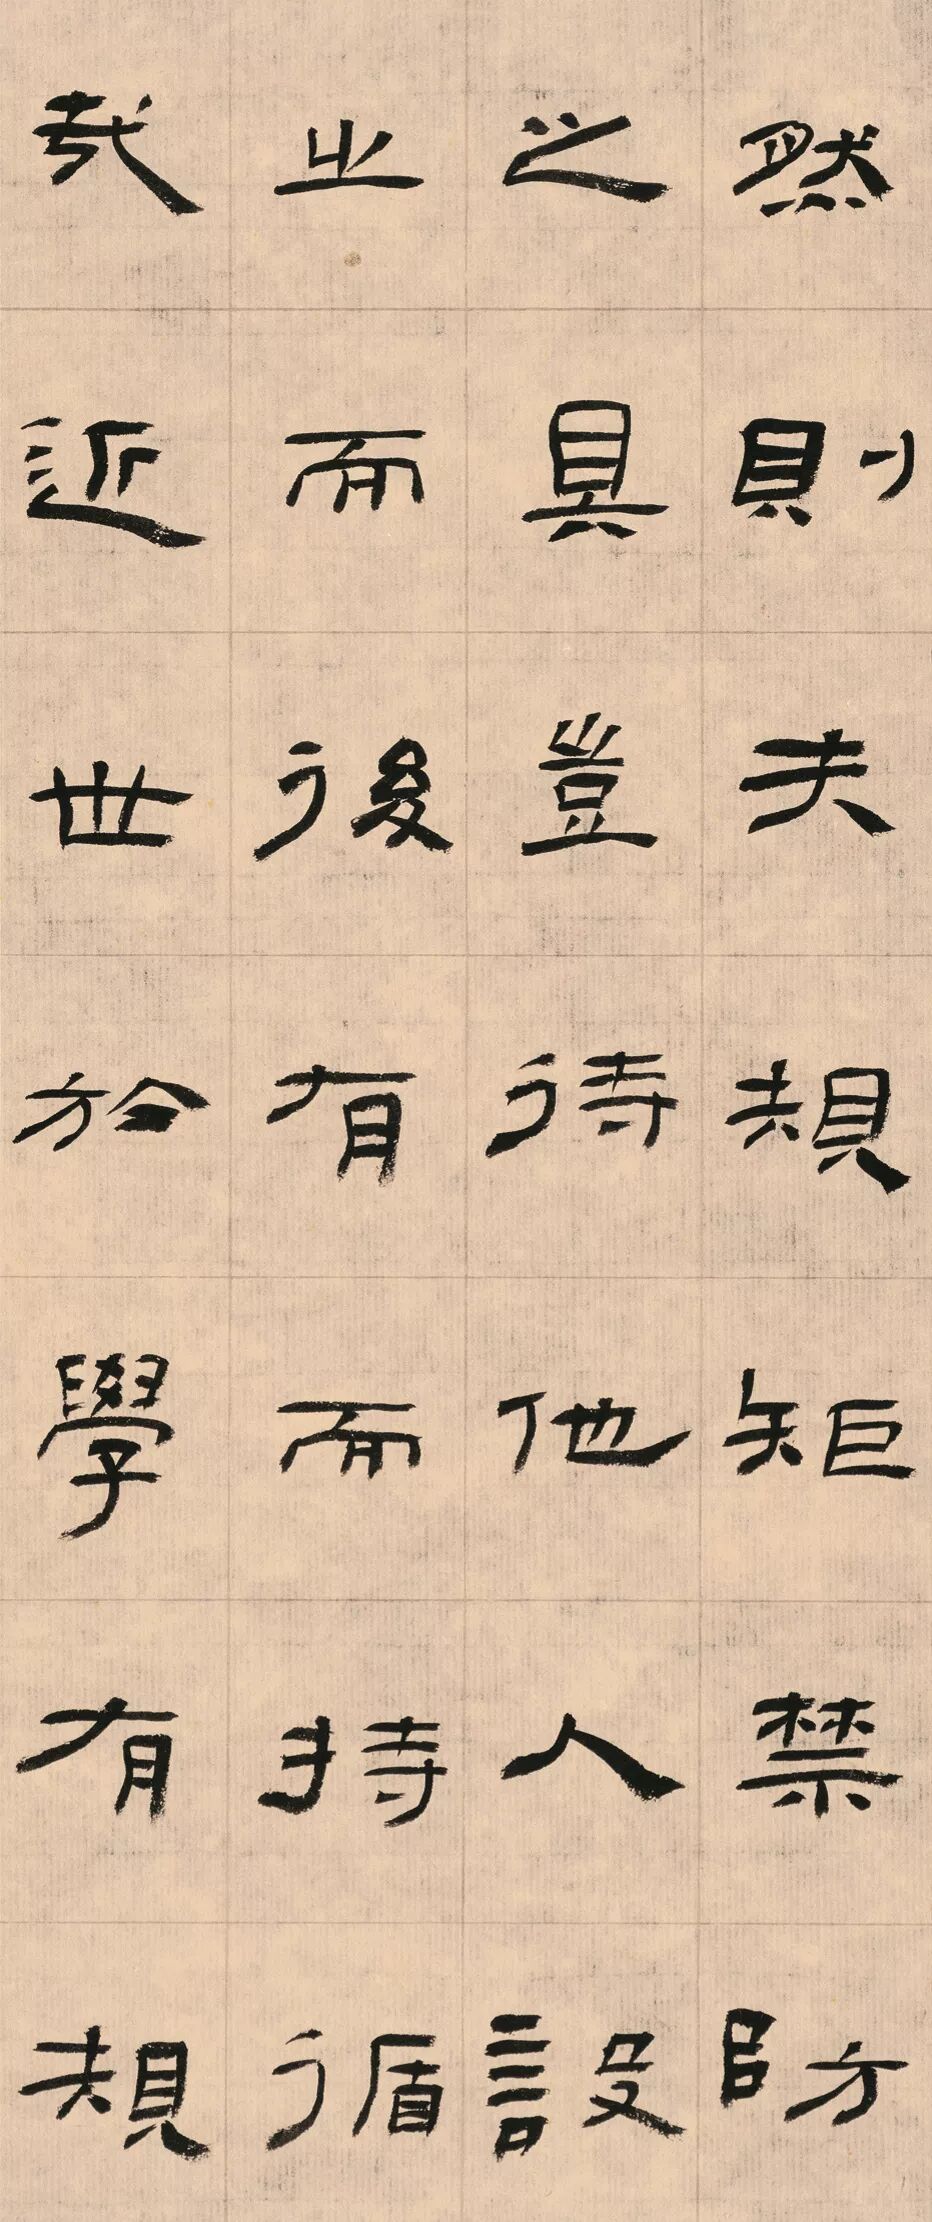 然則夫規矩禁防
之具豈待他人設
之而後有而持循
哉近世於學有規